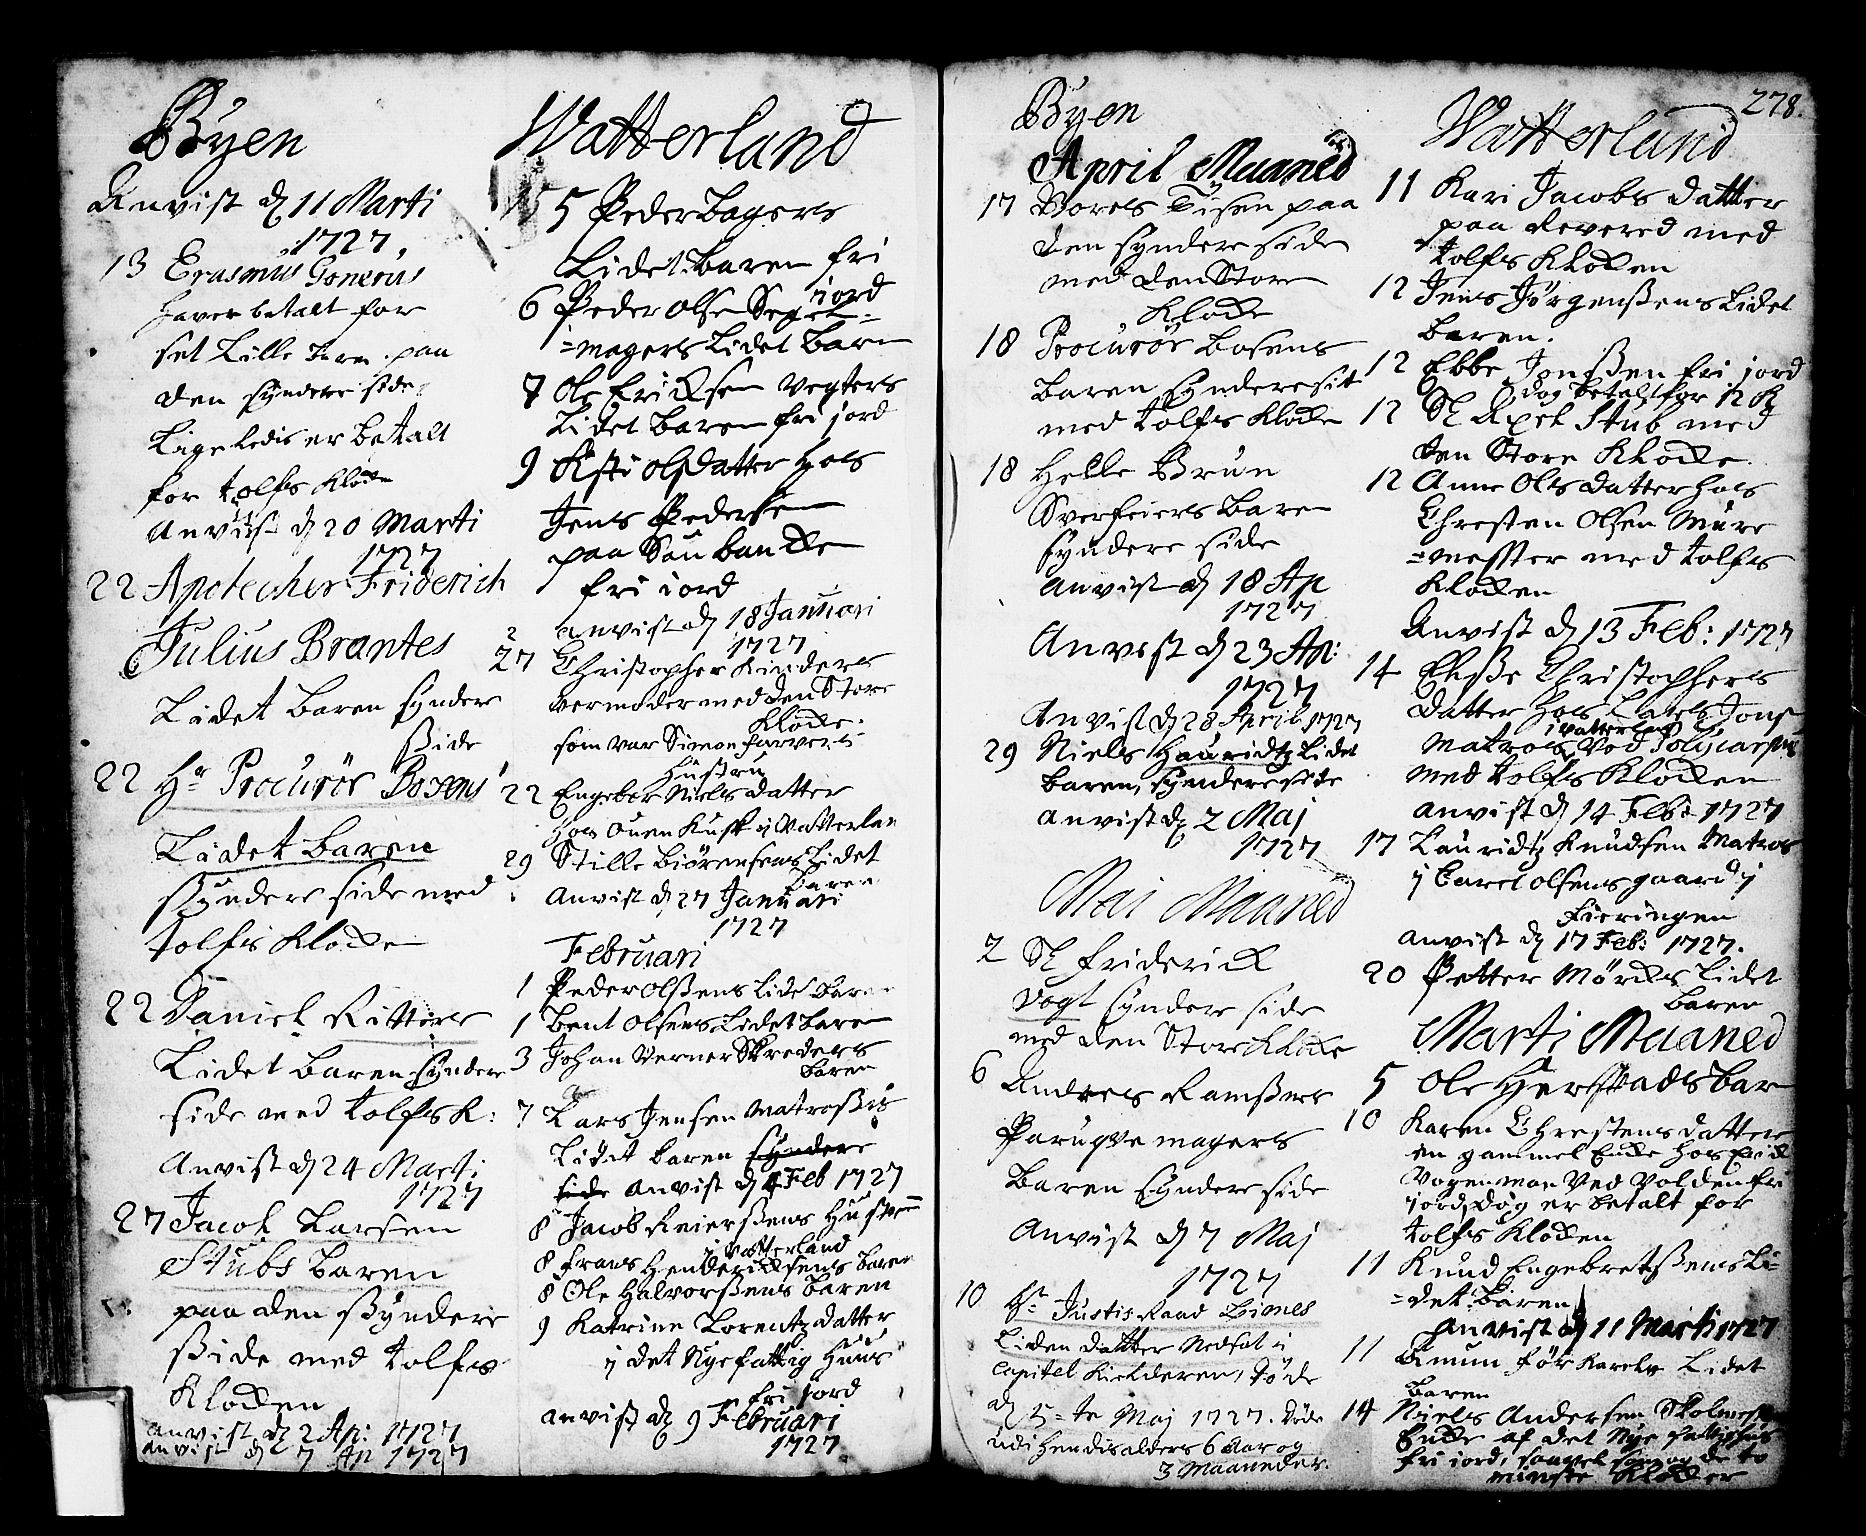 Byen
Anvist d 11 Marti
1727.
13 Erasmus Gonerus
haver betalt for
set Lille barn paa
den syndere side
Ligeledis er betalt
for tolfs Klocken
Anvist d 20 Marti
1727
22 Apotecher Friderich
Julius Brantes
Lidet baren syndere
side
22 Hr Procurør Bosens
Lidet baren
syndere side med
tolfs Klocken
22 Daniel Ritters
Lidet baren syndere
side med tolfs K:
Anvist d 24 Marti
1727
27 Jacob Larsen
Stubs baren
paa den syndere
side med tolfs
Klocken
anvist d 2 Ap: 1727
anvist d 7 Ap 1727
Watterland
5 Peder bagers
Lidet baren fri
iord
6 Peder Olsen Segel=
=magers Lidet barn
7 Ole Ericksen Vegters
Lidet baren fri jord
9 Kisti Olsdatter hos
Jens Pedersen
paa Saubancken
fri iord
anvist d 18 Januari
1727
27 Christopher Kinders
vermoder med den Store
Klocke.
som var Simon farvers
Hustru
22 Engebor Nielsdatter
hos Ouen Kusk i Vatterlan
29 Stille Biørensens Lidet
baren
Anvist d 27 Januari
1727
Februari
1 Peder Olssens Lidet baren
1 bent Olsens Lidet baren
3 Johan Verner Skreders
baren
7 Lars Jensen Matrossis
Lidet baren syndere
side anvist d 4 Feb 1727
8 Jacob Reierssens Hustru
i Vatterland
8 frans Hendericksens baren
8 Ole Halvorssens baren
9 Katrine Lorentz datter
i det Nye fattig Huus
fri jord
anvist d 9 Februari
1727
Byen
April Maaned
17 Vorels Tisen paa
den syndere side
med den Store
Klocke
18 Procurør bosens
baren syndere sit
med tolfs Klocke
18 Helle Brun
Sverfeiers baren
syndere side
anvist d 18 Ap
1727
Anvist d 23 Ap:
1727
Anvist d 28 April 1727
29 Niels Hauridtz Lidet
baren, syndere site
anvist d 2 Maj
1727
Mai Maaned
2 Sl friderick
Vogt syndere side
med den Store Klocke
6 Andres Ramssers
Parugve magers
baren syndere side
Anvist d 7 Maj
1727
10 Hr Justis Raad Leimes
Liden datter Nedsat i
Capitel Kielderen, døde
d 5=te Maj 1727. døde
udi hendis alders 6 aar og
3 Maaneder.
278.
Watterland
11 Kari Jacobs datter
paa Revered med
tolfs Klocken
12 Jens Jørgenssens Lidet
baren.
12 Ebbe Jonssen fri jord
dog betalt for 12 K
12 Sl Axel Stub med
den Store Klocke.
12 Anne Ols datter hos
Chresten Olsen Mure
=messter med tolfs
Klocken
Anvist d 13 Feb: 1727
14 Elsse Christophers
datter hos Lares Jons
i Vatterland
Matros ved Polycarpus
med tolfs Klocken
anvist d 14 Feb: 1727
17 Lauridtz Knudsen Matros
i Carel Olsens gaard i
Fieringen
anvist d 17 Feb: 1727.
20 Petter Mørcks Lidet
baren
Marti Maaned
5 Ole Herstads bar
10 Karen Chrestens datter
en gammel Encke hos Erick
Vogenman Ved Volden fri
iord, dog er betalt for
tolfs Klocken
11 Knud Engebretssens Li=
=det baren
anvist d 11 Marti 1727
11 Amun før Karels Lidet
baren
14 Niels Andersen Skolmest
Encke af det Nye fattighus
fri iord, saavel som og de to
minste Klocker